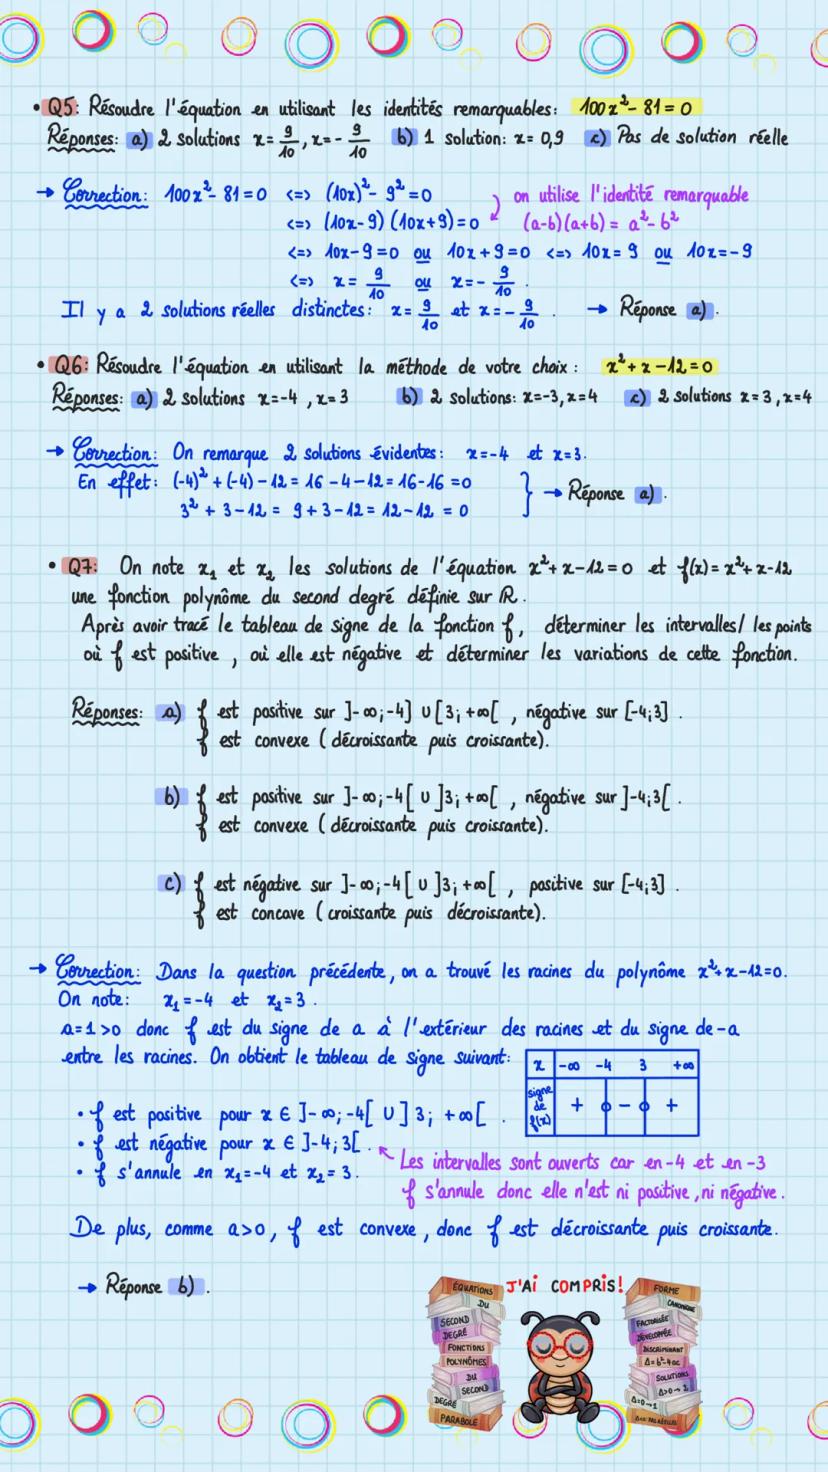 • Q5: Résoudre l'équation en utilisant les identités remarquables: 100x² - 81 = 0
Réponses: a) 2 solutions x = 9/10, x = - 9/10 b) 1 solution: x = 0,9 c) Pas de solution réelle
→ Correction: 100x² - 81 = 0 <=> (10x)² - 9² = 0
on utilise l'identité remarquable
<=> (10x-9) (10x+9) = 0
(a-b)(a+b) = a² - b²
<=> 10x - 9 = 0 ou 10x + 9 = 0 <=> 10x = 9 ou 10x = -9
<=> x = 9/10 ou x = - 9/10.
Il y a 2 solutions réelles distinctes: x = 9/10 et x = - 9/10. → Réponse a).
• Q6: Résoudre l'équation en utilisant la méthode de votre choix: x² + x - 12 = 0
Réponses: a) 2 solutions x=-4, x=3 b) 2 solutions: x=-3, x=4 c) 2 solutions x=3, x=4
→ Correction: On remarque 2 solutions évidentes: x=-4 et x=3.
En effet: (-4)² + (-4) - 12 = 16 - 4 - 12 = 16 - 16 = 0
3² + 3 - 12 = 9 + 3 - 12 = 12 - 12 = 0
} → Réponse a).
• Q7: On note x₁ et x₂ les solutions de l'équation x² + x - 12 = 0 et f(x) = x² + x - 12
une fonction polynôme du second degré définie sur ℝ.
Après avoir tracé le tableau de signe de la fonction f, déterminer les intervalles/ les points
où f est positive, où elle est négative et déterminer les variations de cette fonction.
Réponses: a) f est positive sur ]-∞;-4] ∪ [3;+∞[, négative sur [-4;3].
f est convexe (décroissante puis croissante).
b) f est positive sur ]-∞;-4[ ∪ ]3;+∞[, négative sur ]-4;3[.
f est convexe (décroissante puis croissante).
c) f est négative sur ]-∞;-4[ ∪ ]3;+∞[, positive sur [-4;3].
f est concave (croissante puis décroissante).
→ Correction: Dans la question précédente, on a trouvé les racines du polynôme x²+x-12=0.
On note: x₁=-4 et x₂=3.
a=1>0 donc f est du signe de a à l'extérieur des racines et du signe de -a
entre les racines. On obtient le tableau de signe suivant:
x -∞ -4 3 +∞
signe de f(x) + 0 - 0 +
• f est positive pour x ∈ ]-∞;-4[ ∪ ]3; +∞[.
• f est négative pour x ∈ ]-4;3[.
• f s'annule en x₁=-4 et x₂=3.
Les intervalles sont ouverts car en -4 et en -3
f s'annule donc elle n'est ni positive, ni négative.
De plus, comme a>0, f est convexe, donc f est décroissante puis croissante.
→ Réponse b).
J'Ai COMPRiS!
ÉQUATIONS
DU
SECOND
DEGRÉ
FONCTIONS
POLYNÔMES
DU
SECOND
DEGRÉ
PARABOLE
FORME
CANONIQUE
FACTORISÉE
DÉVELOPPÉE
DISCRIMINANT
Δ=b²-4ac
SOLUTIONS
Δ>0→2
Δ=0→1